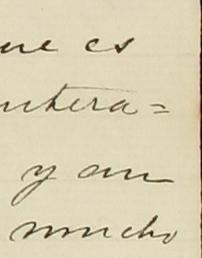 que es
ntera=
y aun
mucho